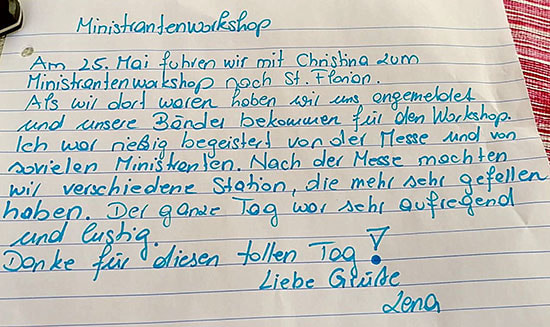 Ministrantenworkshop
Am 25. Mai fuhren wir mit Christina zum
Ministrantenwakshop nach St. Florian.
Als wir dort waren haben wir uns angemeldet
und unsere Bänder bekommen für den Workshop.
Ich war rießig begeistert von der Messe und von
sovielen Ministranten. Nach der Messe machten
wir verschiedene Station, die mehr sehr gefallen
haben. Der ganze Tag war sehr aufregend
und lustig.
Danke für diesen tollen Tag!
Liebe Grüße
Lena